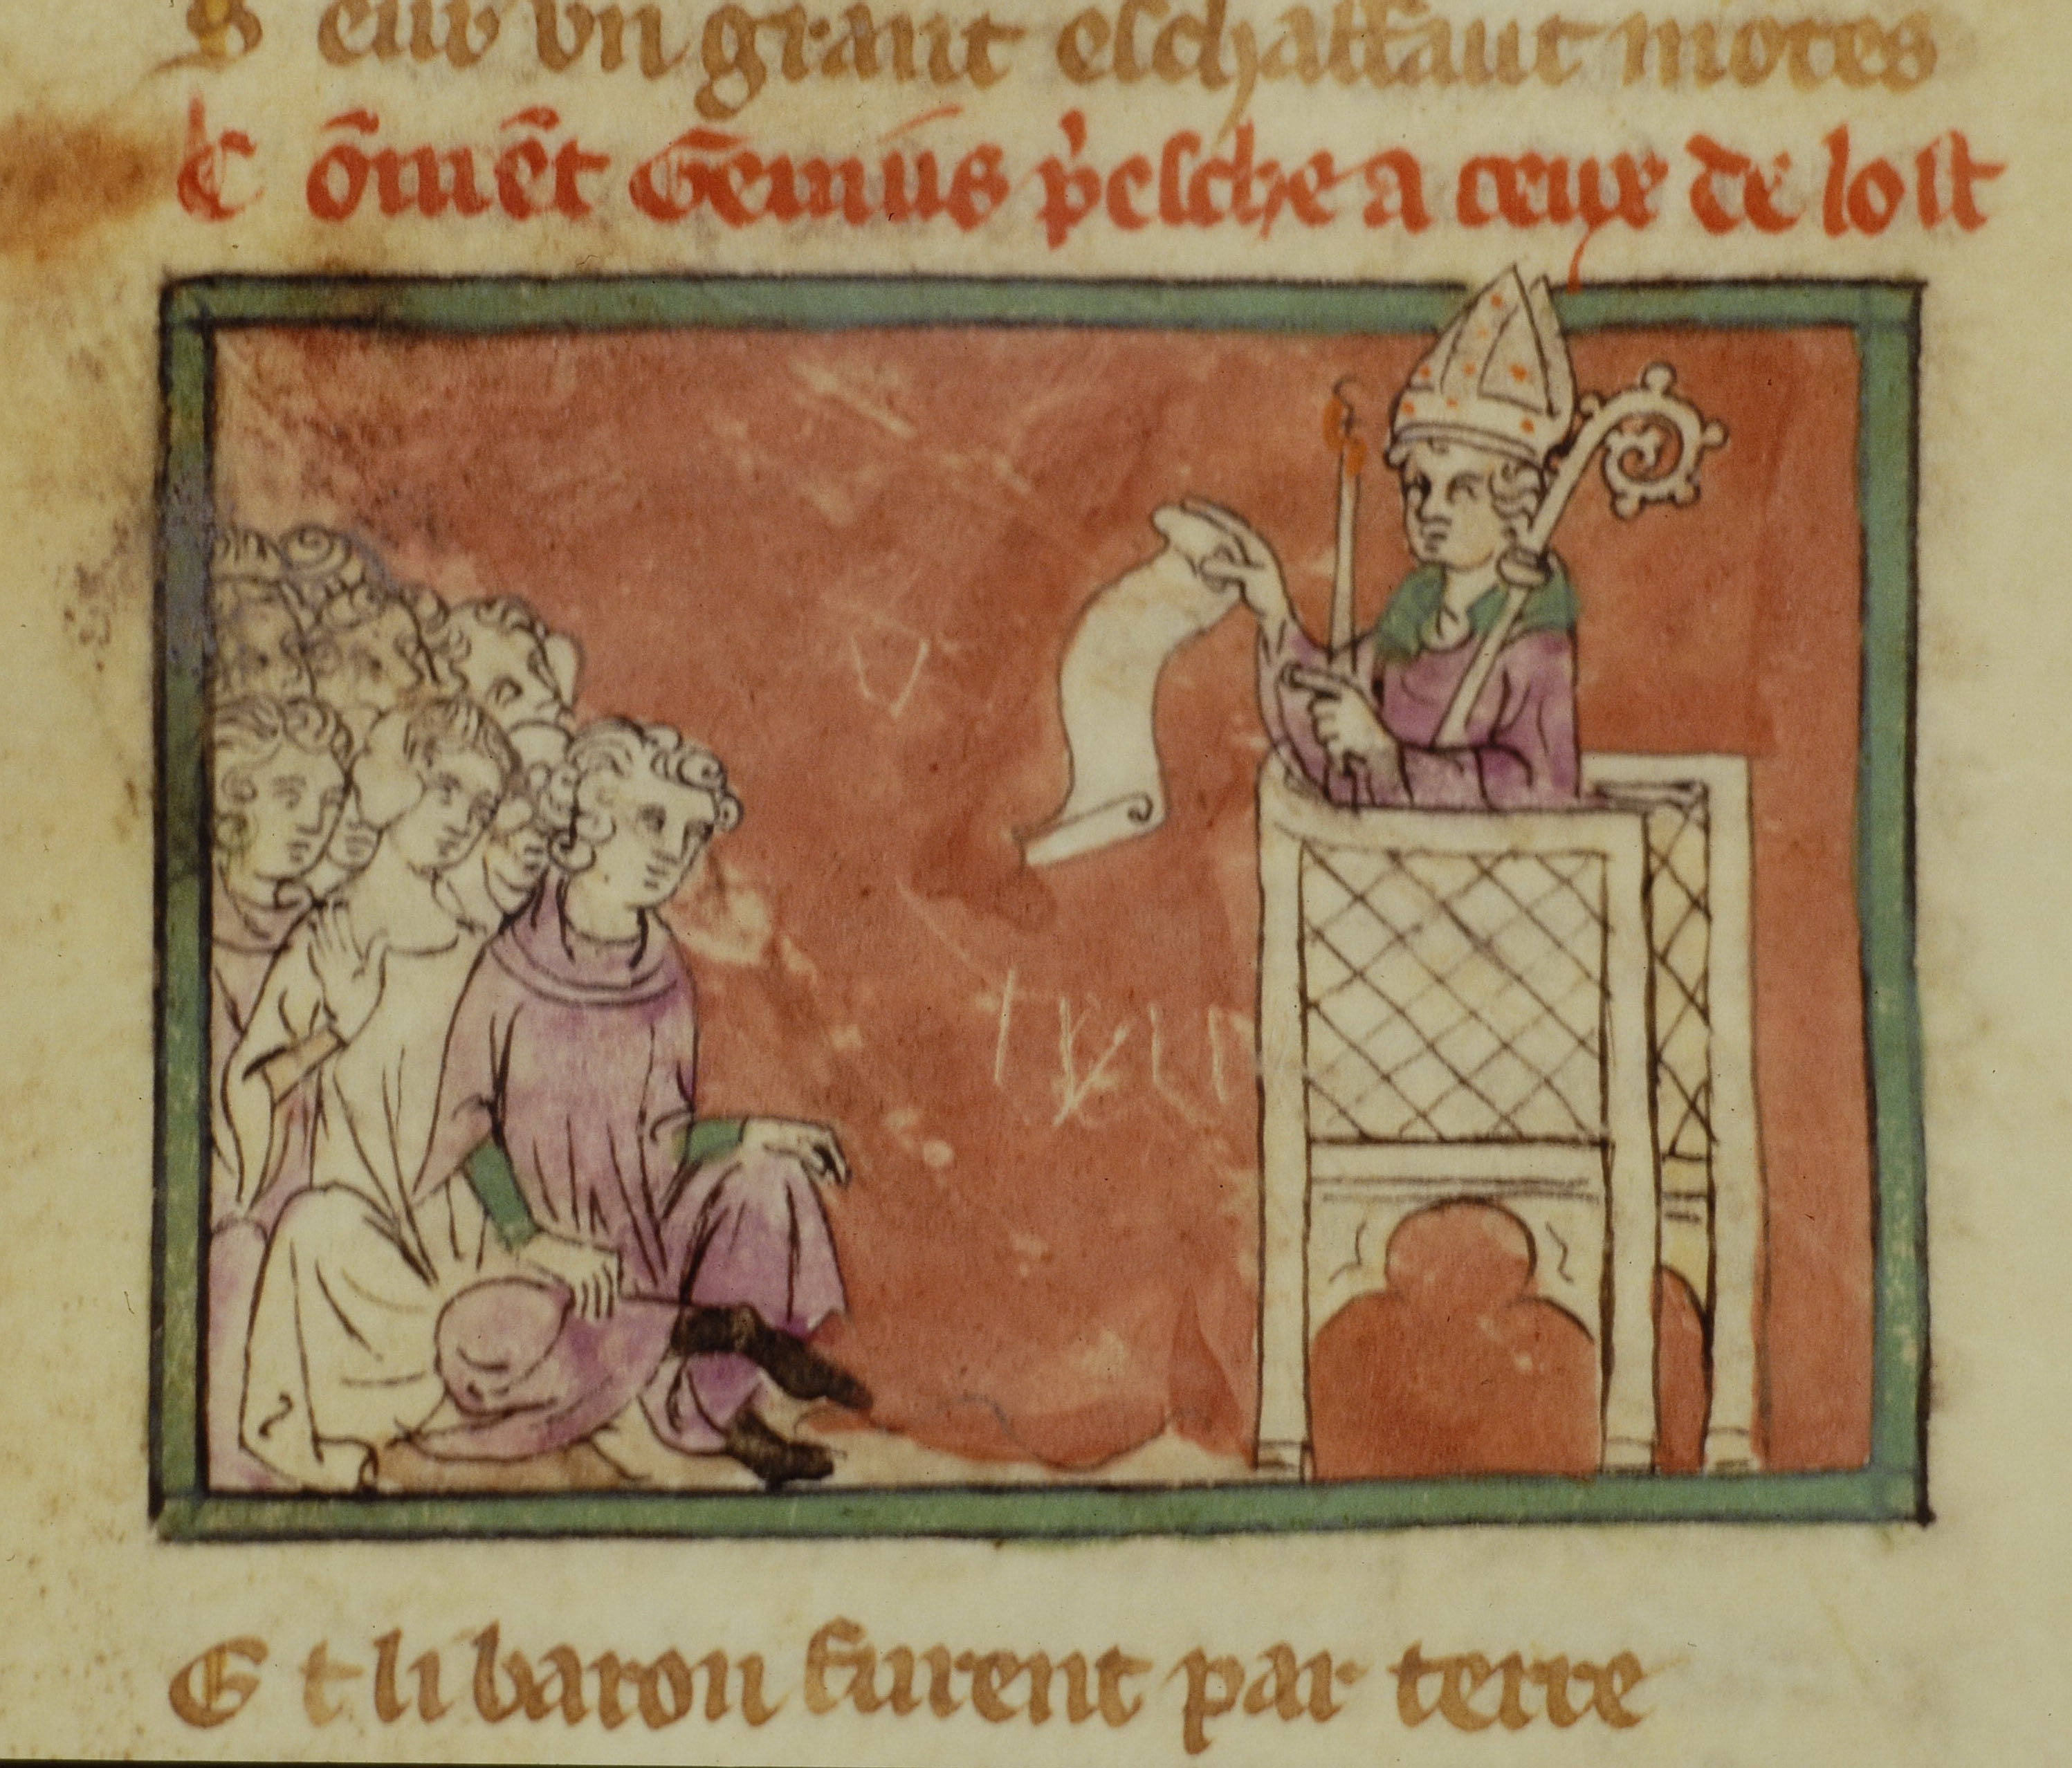 S eur vn grant eschaffaut motes
C õmẽt Genius p̃esche a ceux de lost
E t li baron furent par terre